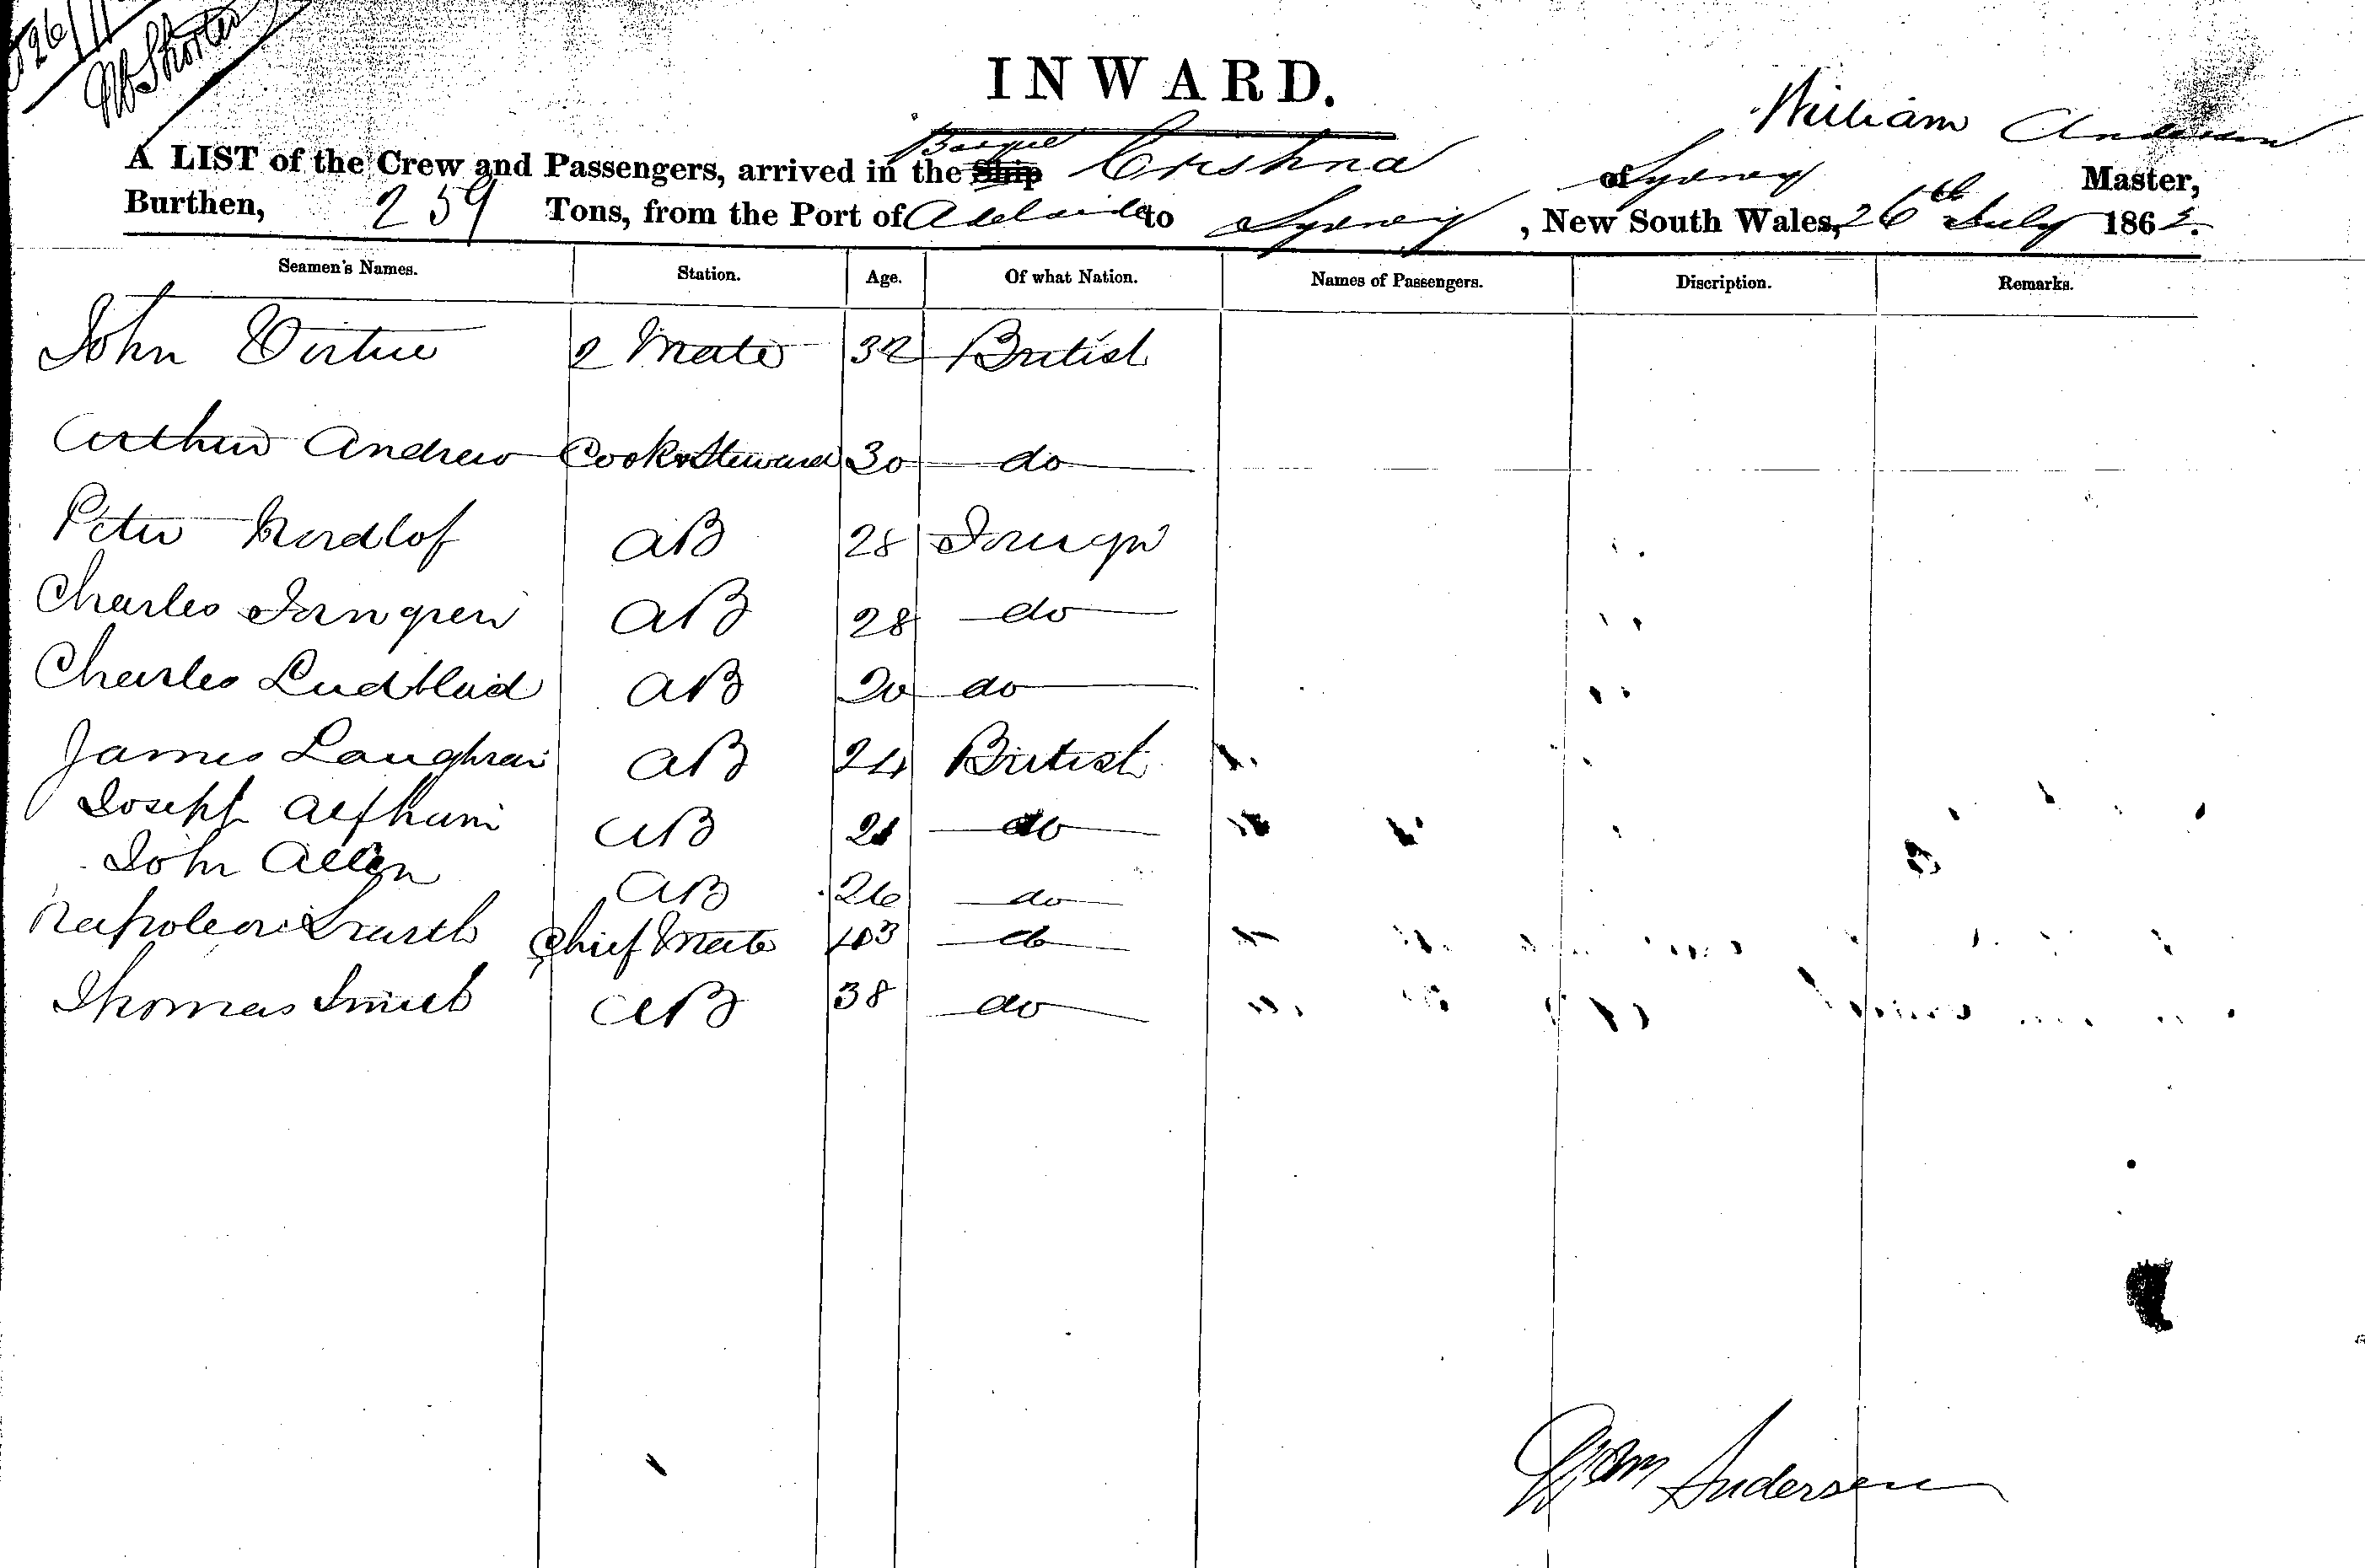 26
Shorter
INWARD.
William Anderson
A LIST of the Crew and Passengers, arrived in the Ship Barque Crishna of Sydney Master,
Burthen, 259 Tons, from the Port of Adelaide to Sydney, New South Wales, 26th July 1862.
Seamen's Names. Station. Age. Of what Nation. Names of Passengers. Discription. Remarks.
John Virtue 2 Mate 32 British
Arthur Andrew Cook & Steward 30 do
Peter Nordlof AB 28 Foreign
Charles AB 28 do
Charles Ludblad AB 20 do
James Laughran AB 24 British
Joseph AB 21 do
John Allen AB 26 do
Napoleon Chief Mate 43 do
Thomas Smith AB 38 do
Wm Andersen